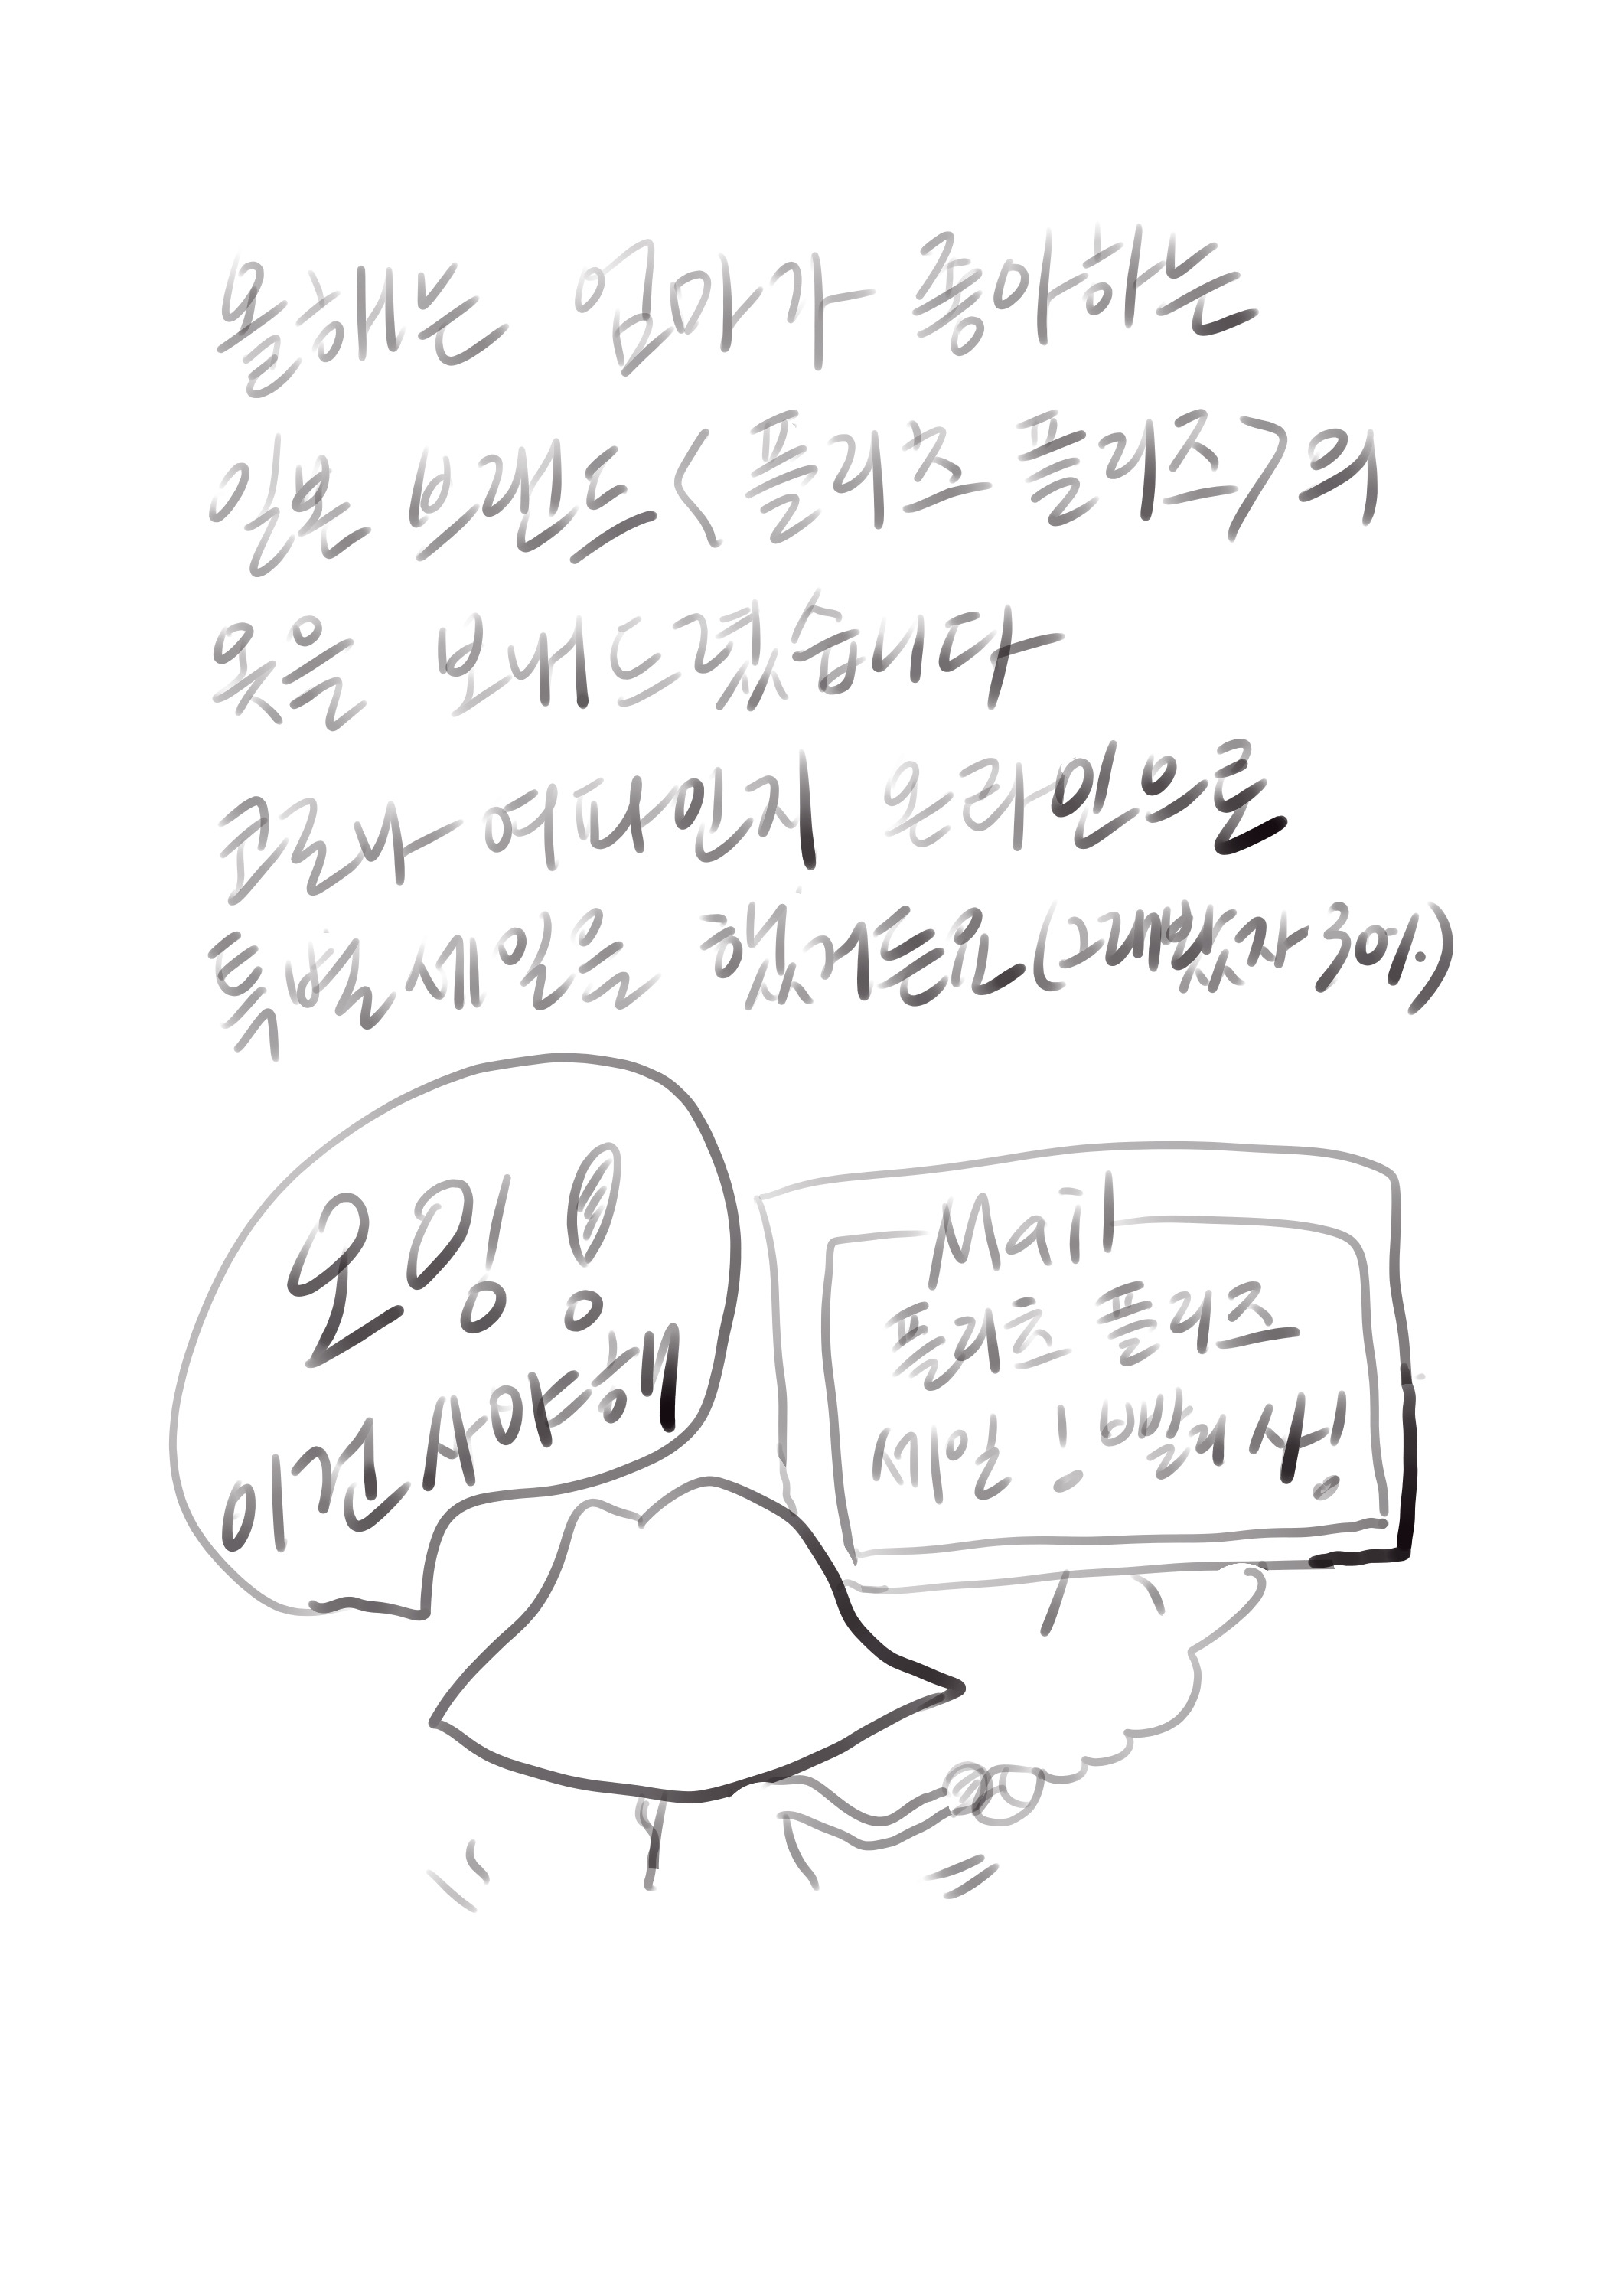 올해는 엄마가 좋아하는
일본 브랜드 <플리츠 플리츠>의
옷을 보내드렸습니다
코로나 여파인지 온라인으로
특별 세일을 했거든요 (그래봤자 30%.)
오잉!
이건 사야해
Mail
플리츠 플리츠
세일! 빨랑 사!